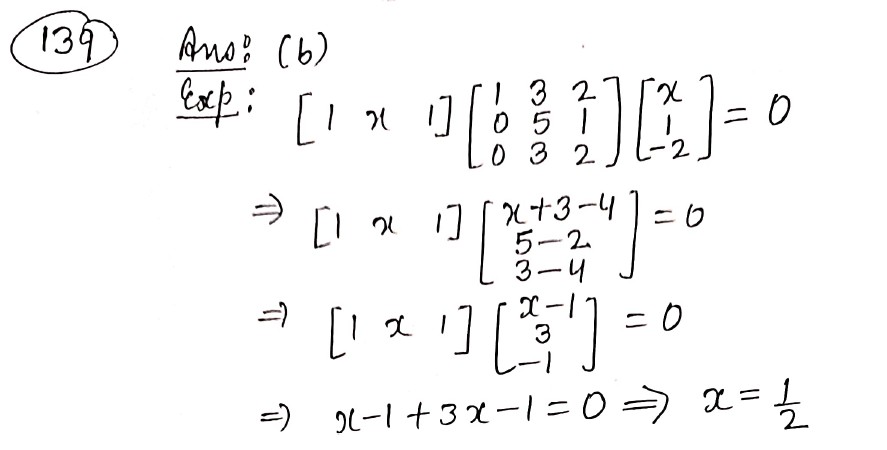 139 Ans: (b)
Exp: [1 x 1] [1 3 2; 0 5 1; 0 3 2] [x; 1; -2] = 0
⇒ [1 x 1] [x+3-4; 5-2; 3-4] = 0
⇒ [1 x 1] [x-1; 3; -1] = 0
⇒ x-1+3x-1=0 ⇒ x = 1/2